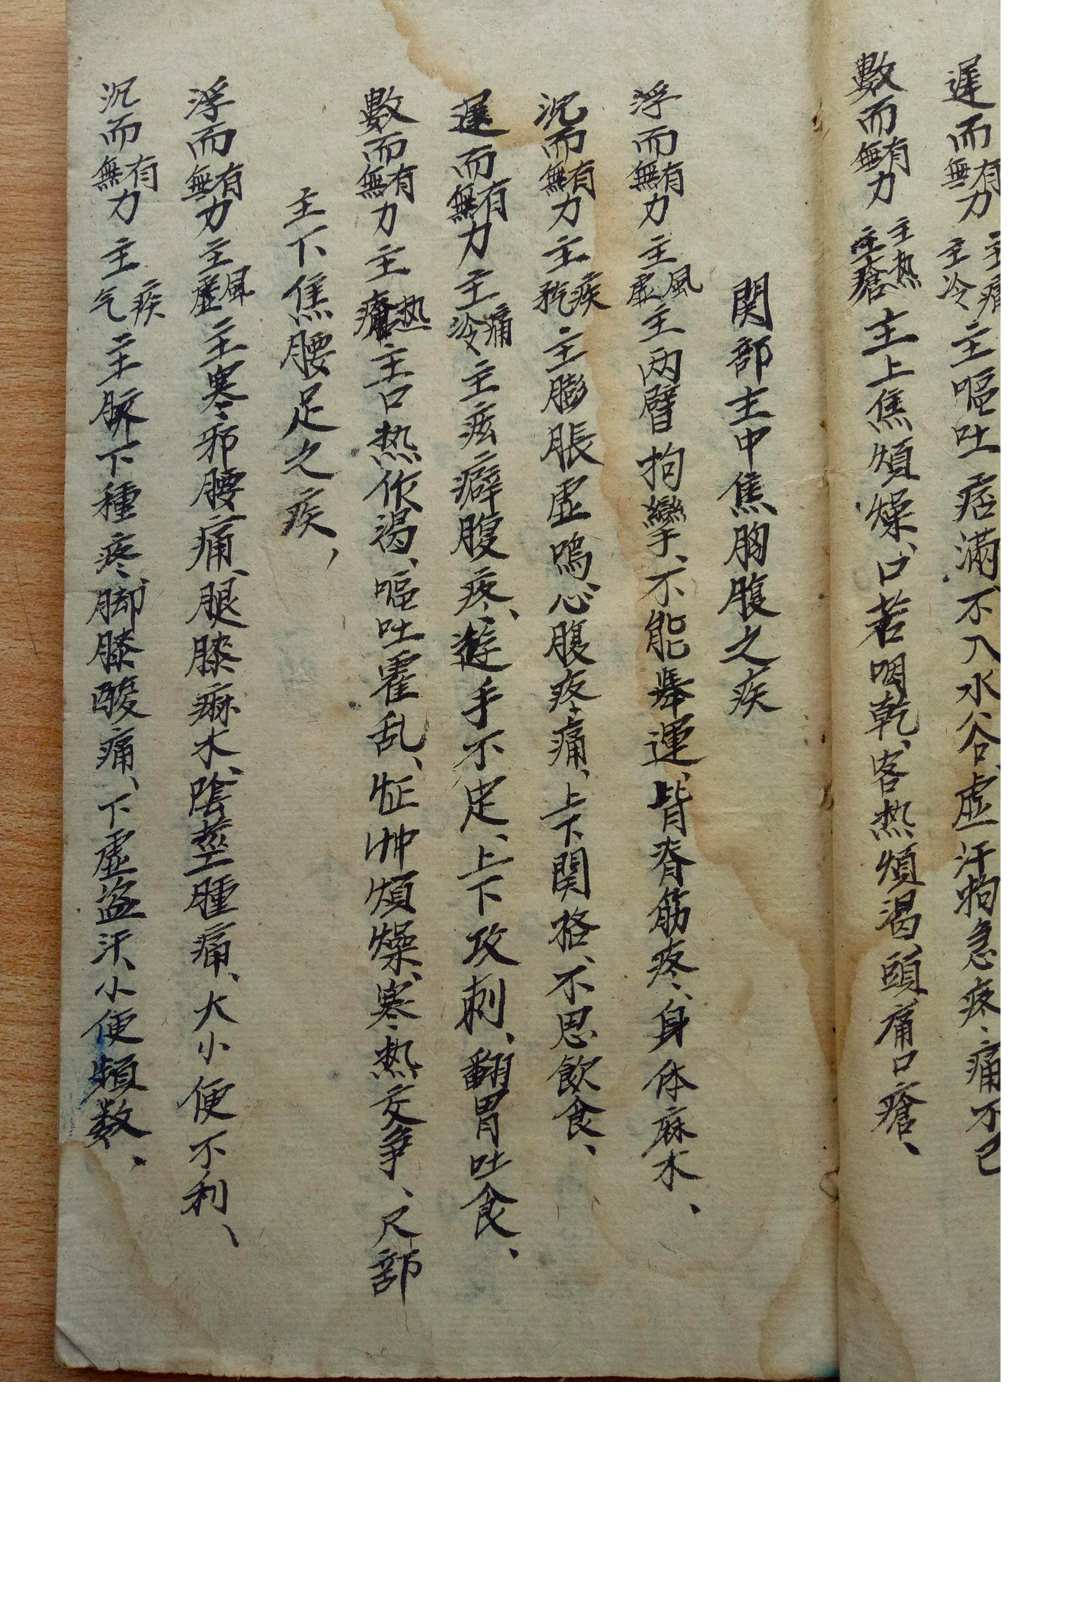 遲而有無力主痛主冷主嘔吐痞滿、不入水谷、虛汗拘急疼痛不已
數而有無力主热主瘡主上焦煩燥、口苦咽乾、客热煩渴、頭痛口瘡、
関部主中焦胸腹之疾
浮而有無力主風虛主两臂拘攣、不能舉運、背脊筋疼、身体麻木、
沉而有無力主疾氣主膨脹虛鳴、心腹疼痛、上下関格、不思飲食、
遲而有無力主痛冷主痃癖腹疼、遊手不定、上下攻刺、翻胃吐食、
數而有無力主热瘡主口热作渴、嘔吐霍乱、怔忡煩燥、寒热交争、尺部
主下焦腰足之疾，
浮而有無力主風虛主寒邪腰痛、腿膝痳木、陰莖腫痛、大小便不利、
沉而有無力主疾气主脐下種疼、脚膝酸痛、下虛盗汗、小便頻数、